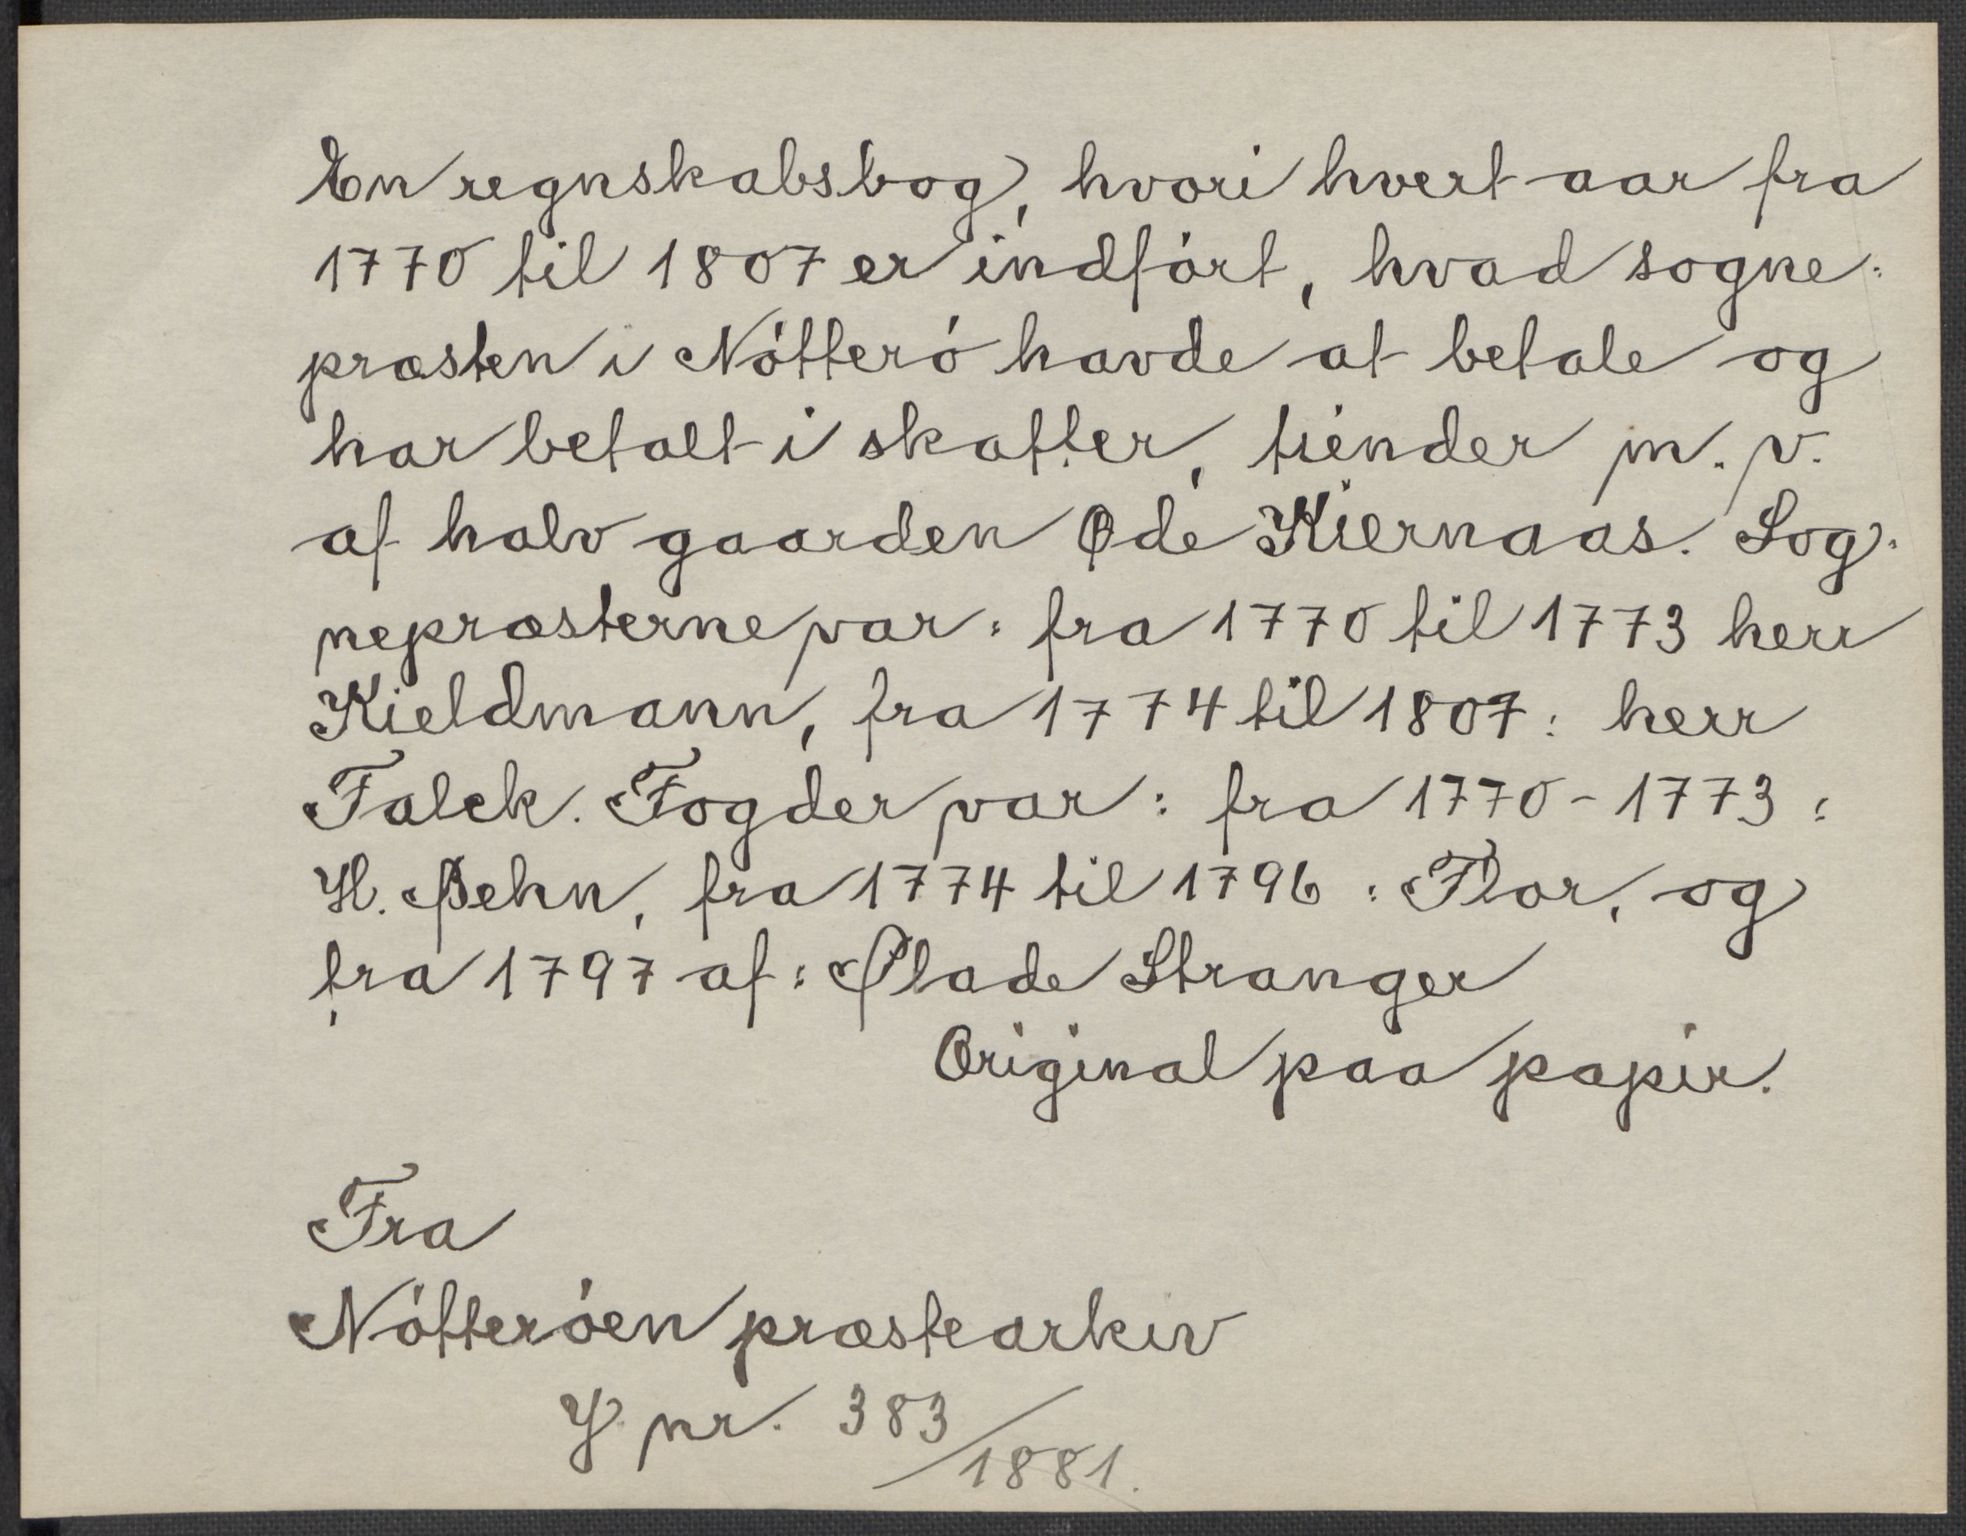 En regnskabsbog, hvori hvert aar fra
1770 til 1807 er indfört, hvad sogne-
præsten i Nötterö havde at betale og
har betalt i skatter, tiender m. v.
af halv gaarden Øde Kiernaas. Sog-
nepræsterne var: fra 1770 til 1773 herr
Kieldmann, fra 1774 til 1807: herr
Falck. Fogder var: fra 1770-1773:
H. Behn, fra 1774 til 1796: Flor, og
fra 1797 af: Plade Stranger
Original paa papir.
Fra
Nötteröen præstearkiv
J nr. 383/1881.